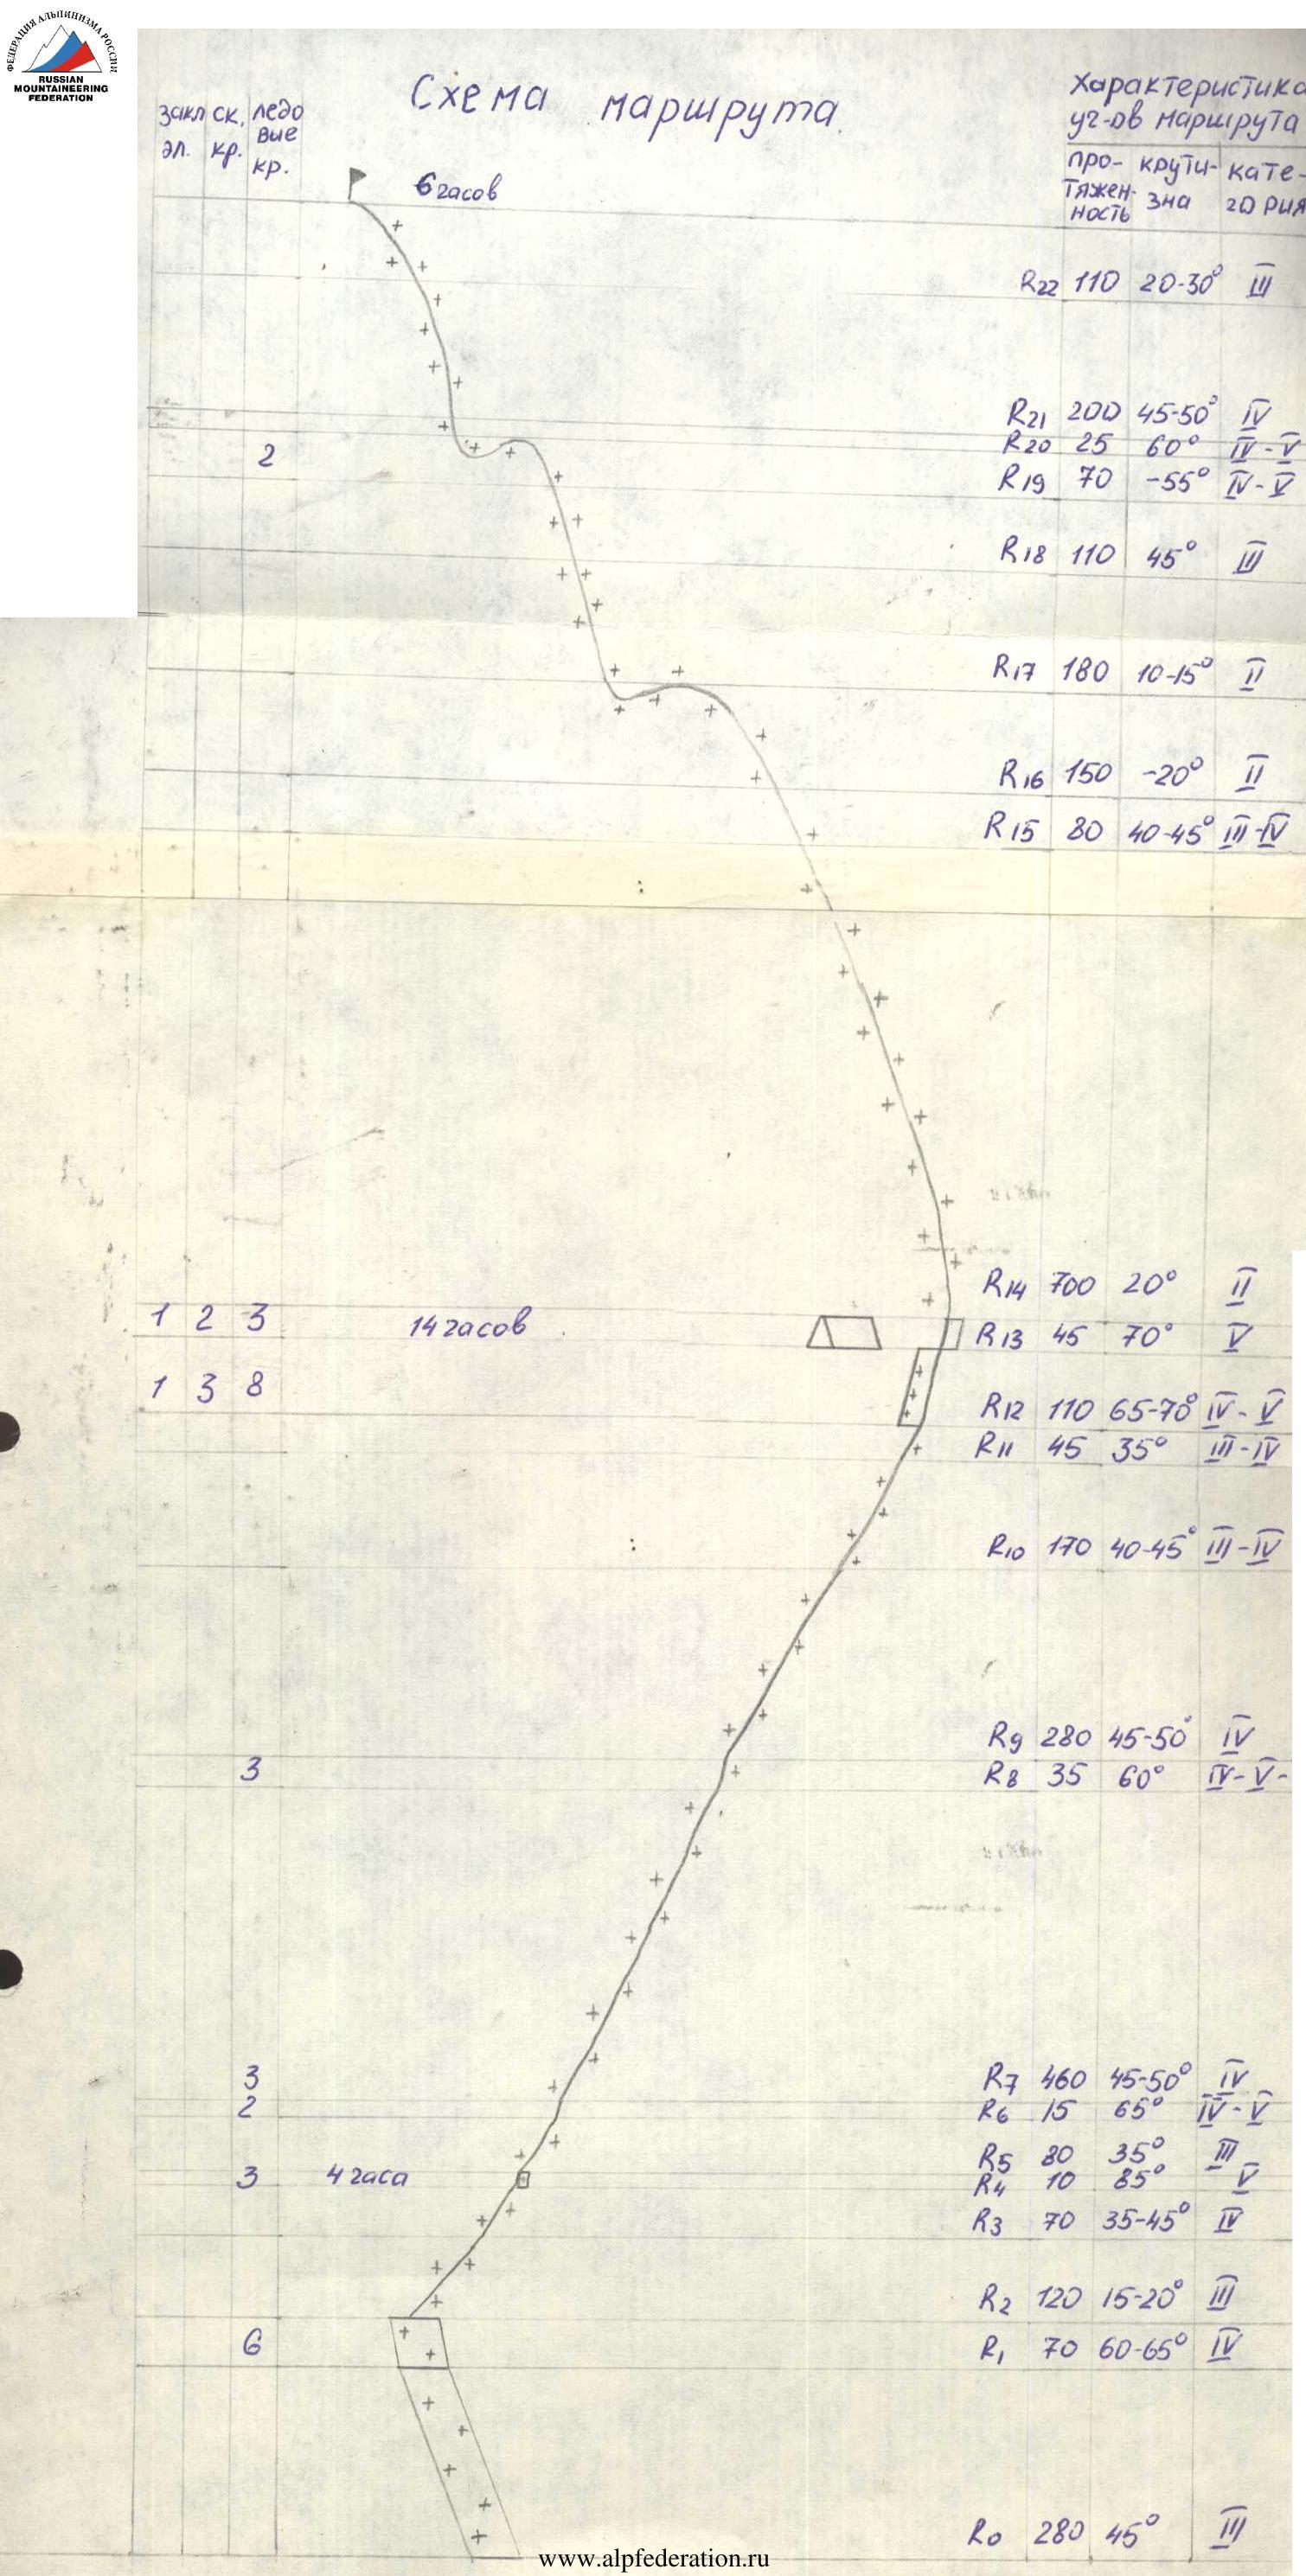 ФЕДЕРАЦИЯ АЛЬПИНИЗМА РОССИИ
RUSSIAN
MOUNTAINEERING
FEDERATION
Схема маршрута
Характеристика
уч-ов маршрута
закл ск. ледо
вые
эл. кр. кр.
про- крути- кате-
тяжен- зна гория
ность
6 часов
R22 110 20-30° III
R21 200 45-50° IV
2 R20 25 60° IV-V
R19 70 -55° IV-V
R18 110 45° III
R17 180 10-15° II
R16 150 -20° II
R15 80 40-45° III-IV
R14 700 20° II
1 2 3 14 часов R13 45 70° V
1 3 8 R12 110 65-70° IV-V
R11 45 35° III-IV
R10 170 40-45° III-IV
R9 280 45-50° IV
3 R8 35 60° IV-V-
3 R7 460 45-50° IV
2 R6 15 65° IV-V
R5 80 35° III
3 4 часа R4 10 85° V
R3 70 35-45° IV
R2 120 15-20° III
6 R1 70 60-65° IV
R0 280 45° III
www.alpfederation.ru